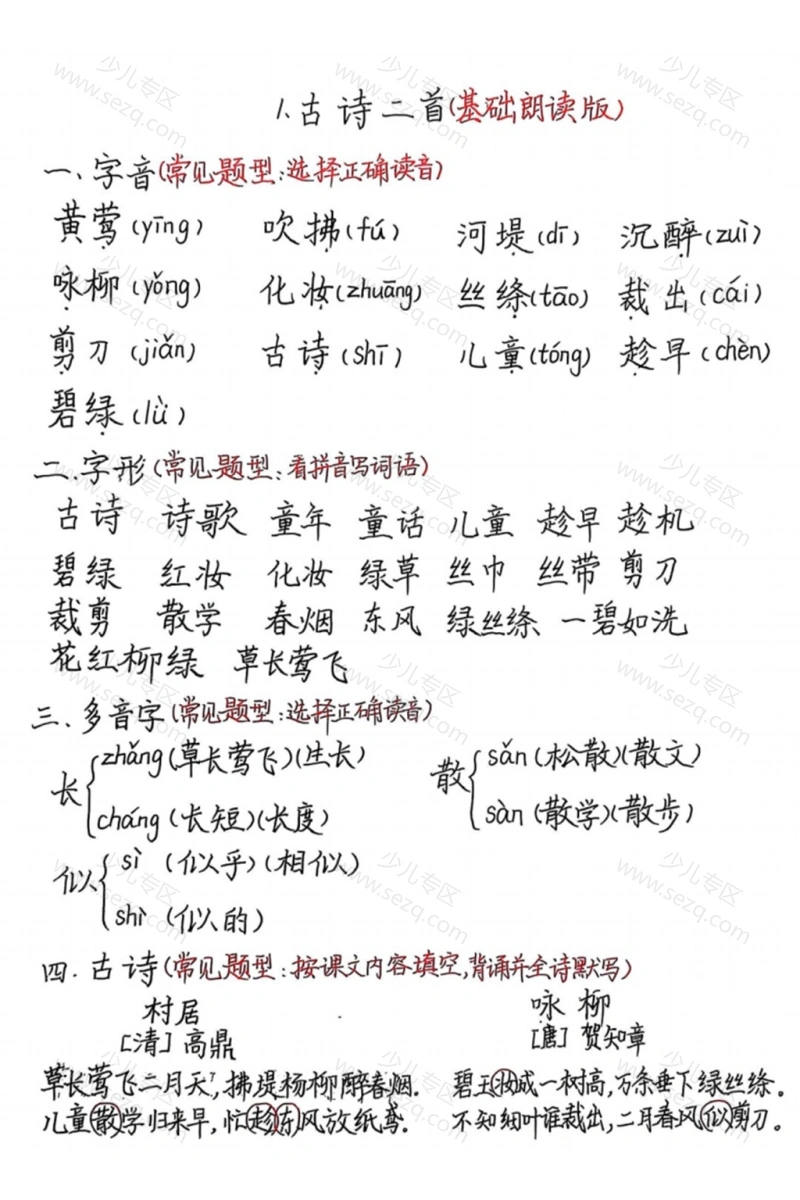 1.古诗二首(基础朗读版)
一、字音(常见题型:选择正确读音)
黄莺(yīng) 吹拂(fú) 河堤(dī) 沉醉(zuì)
咏柳(yǒng) 化妆(zhuāng) 丝绦(tāo) 裁出(cái)
剪刀(jiǎn) 古诗(shī) 儿童(tóng) 趁早(chèn)
碧绿(lǜ)
二.字形(常见题型:看拼音写词语)
古诗 诗歌 童年 童话 儿童 趁早 趁机
碧绿 红妆 化妆 绿草 丝巾 丝带 剪刀
裁剪 散学 春烟 东风 绿丝绦 一碧如洗
花红柳绿 草长莺飞
三.多音字(常见题型:选择正确读音)
长 zhǎng(草长莺飞)(生长)
cháng(长短)(长度)
散 sǎn(松散)(散文)
sàn(散学)(散步)
似 sì(似乎)(相似)
shì(似的)
四.古诗(常见题型:按课文内容填空,背诵并全诗默写)
村居
[清]高鼎
草长莺飞二月天,拂堤杨柳醉春烟.
儿童散学归来早,忙趁东风放纸鸢.
咏柳
[唐]贺知章
碧玉妆成一树高,万条垂下绿丝绦.
不知细叶谁裁出,二月春风似剪刀。
少儿专区
www.sezq.com